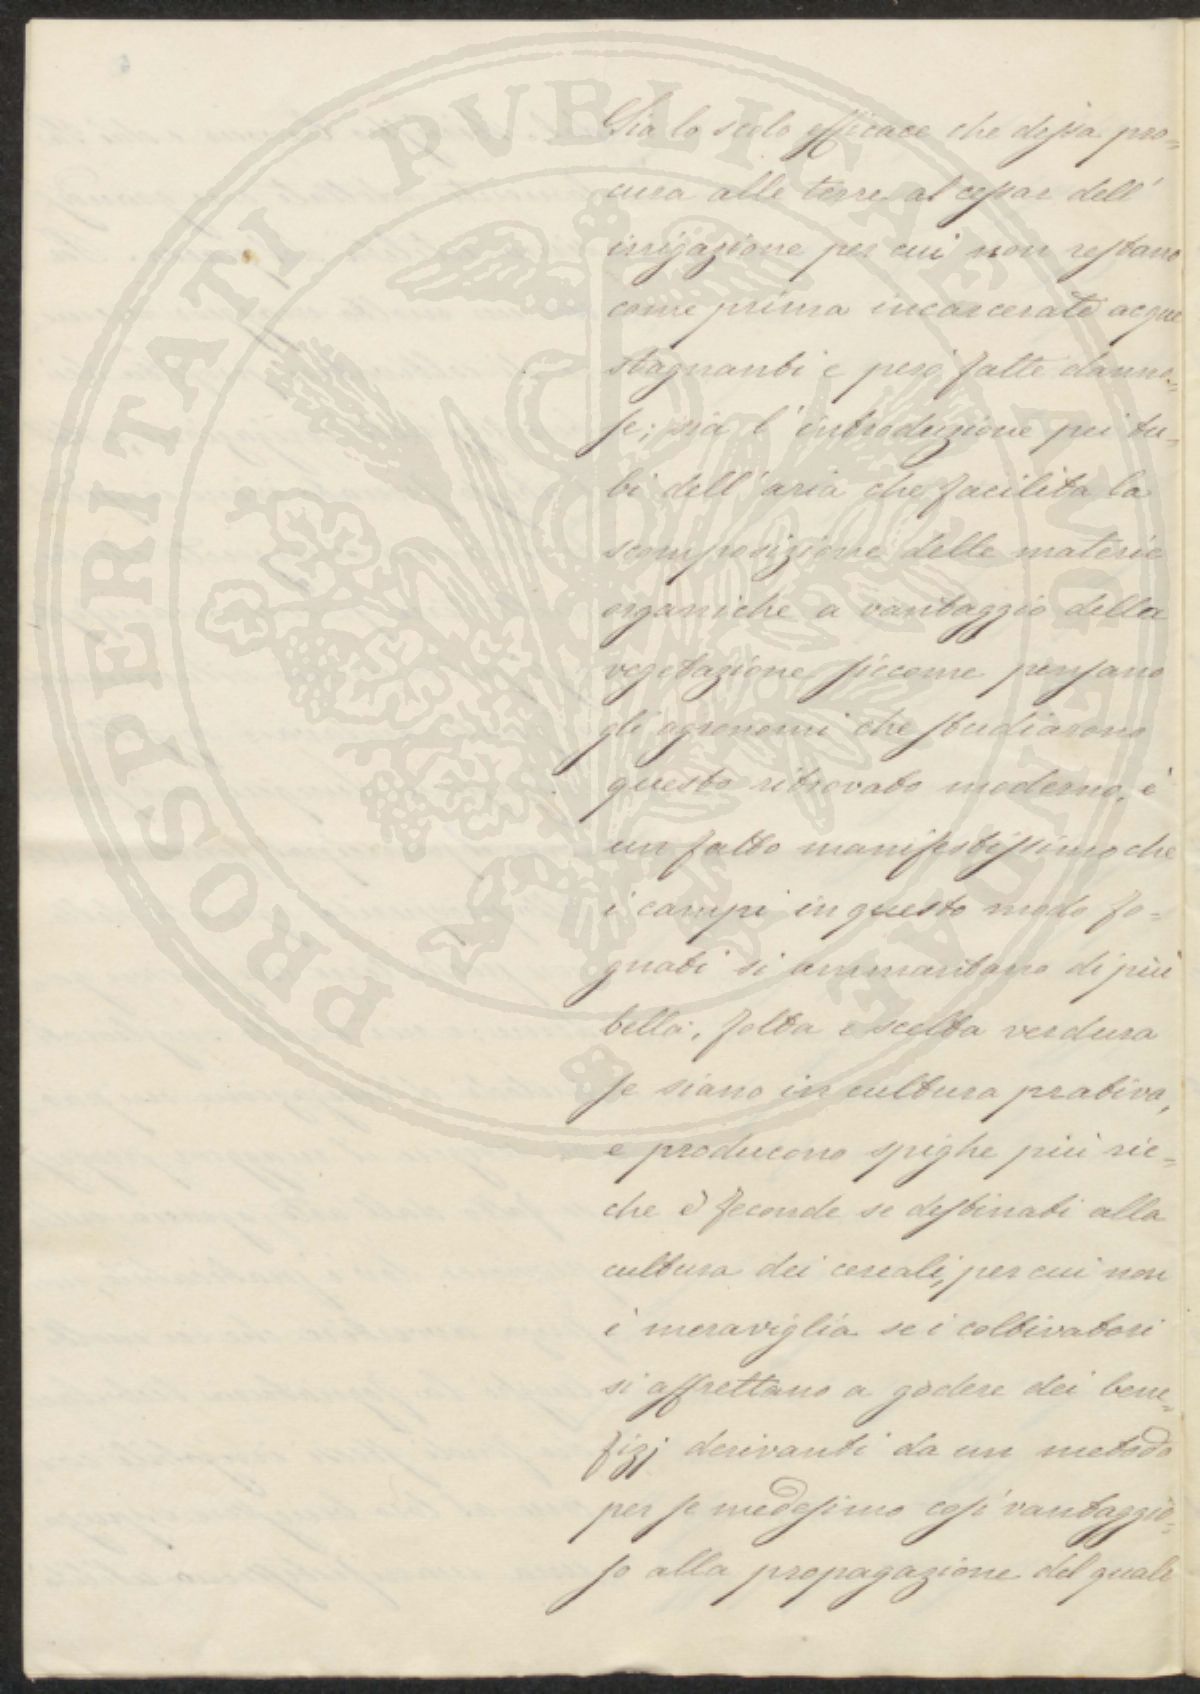 Sia lo scolo efficace che dessa pro=
cura alle terre al cessar dell'
irrigazione per cui non restano
come prima incarcerate acque
stagnanti e però fatte danno=
se; sia l'introduzione pei tu=
bi dell'aria che facilita la
scomposizione delle materie
organiche a vantaggio della
vegetazione siccome pensano
gli agronomi che studiarono
questo ritrovato moderno, è
un fatto manifestissimo che
i campi in questo modo fo=
gnati si ammantano di più
bella, folta e scelta verdura
se siano in cultura prativa,
e producono spighe più ric=
che e feconde se destinati alla
cultura dei cereali, per cui non
è meraviglia se i coltivatori
si affrettano a godere dei bene=
fizj derivanti da un metodo
per se medesimo così vantaggio=
so alla propagazione del quale
PROSPERITATI PVBLICAE AVGENDAE